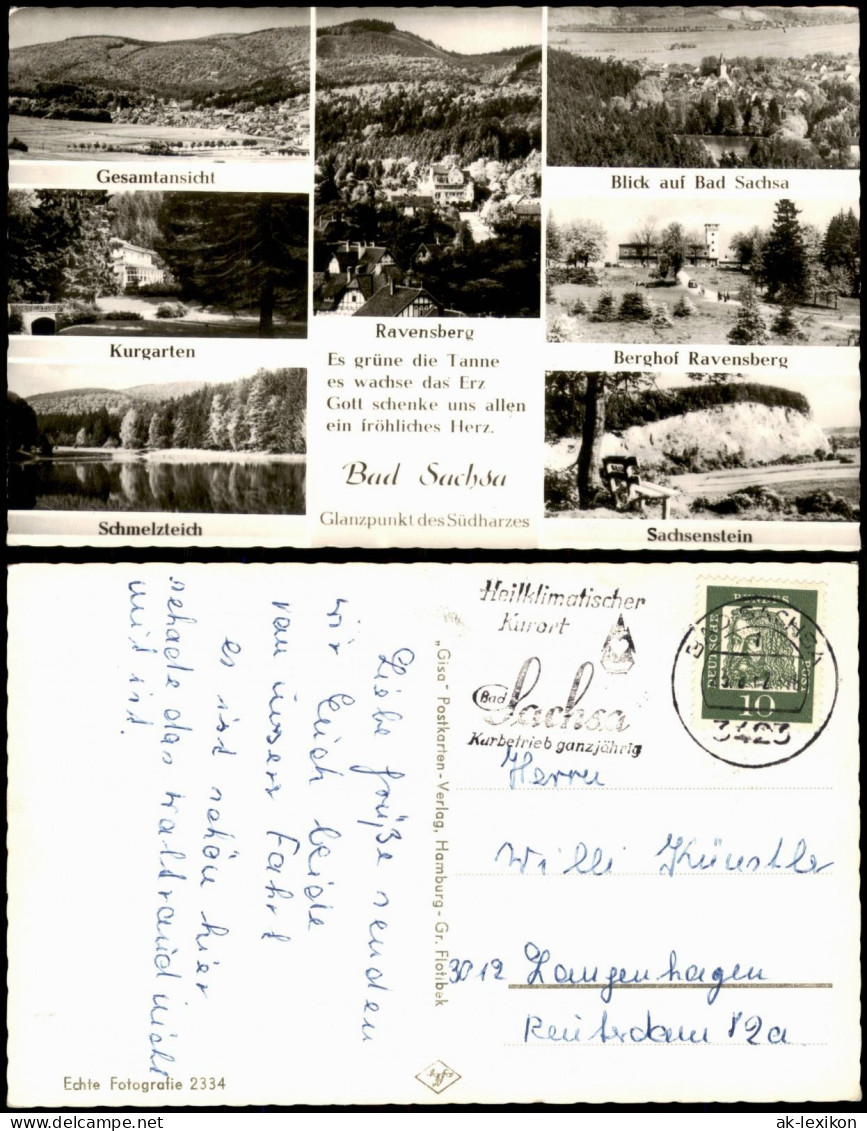 Gesamtansicht
Kurgarten
Schmelzteich
Ravensberg
Es grüne die Tanne
es wachse das Erz
Gott schenke uns allen
ein fröhliches Herz.
Bad Sachsa
Glanzpunkt des Südharzes
Blick auf Bad Sachsa
Berghof Ravensberg
Sachsenstein
Liebe Grüße senden
wir Euch beide
von unserer Fahrt
es ist schön hier
schade das Waltraud nicht
mit ist.
Echte Fotografie 2334
„Gisa" Postkarten-Verlag, Hamburg-Gr. Flotbek
Heilklimatischer
Kurort
Bad
Sachsa
Kurbetrieb ganzjährig
BAD SACHSA
3423
DEUTSCHE BUNDESPOST
10
Herrn
Willi Künstler
3012 Langenhagen
Reuterdam 82a
ak-lexikon